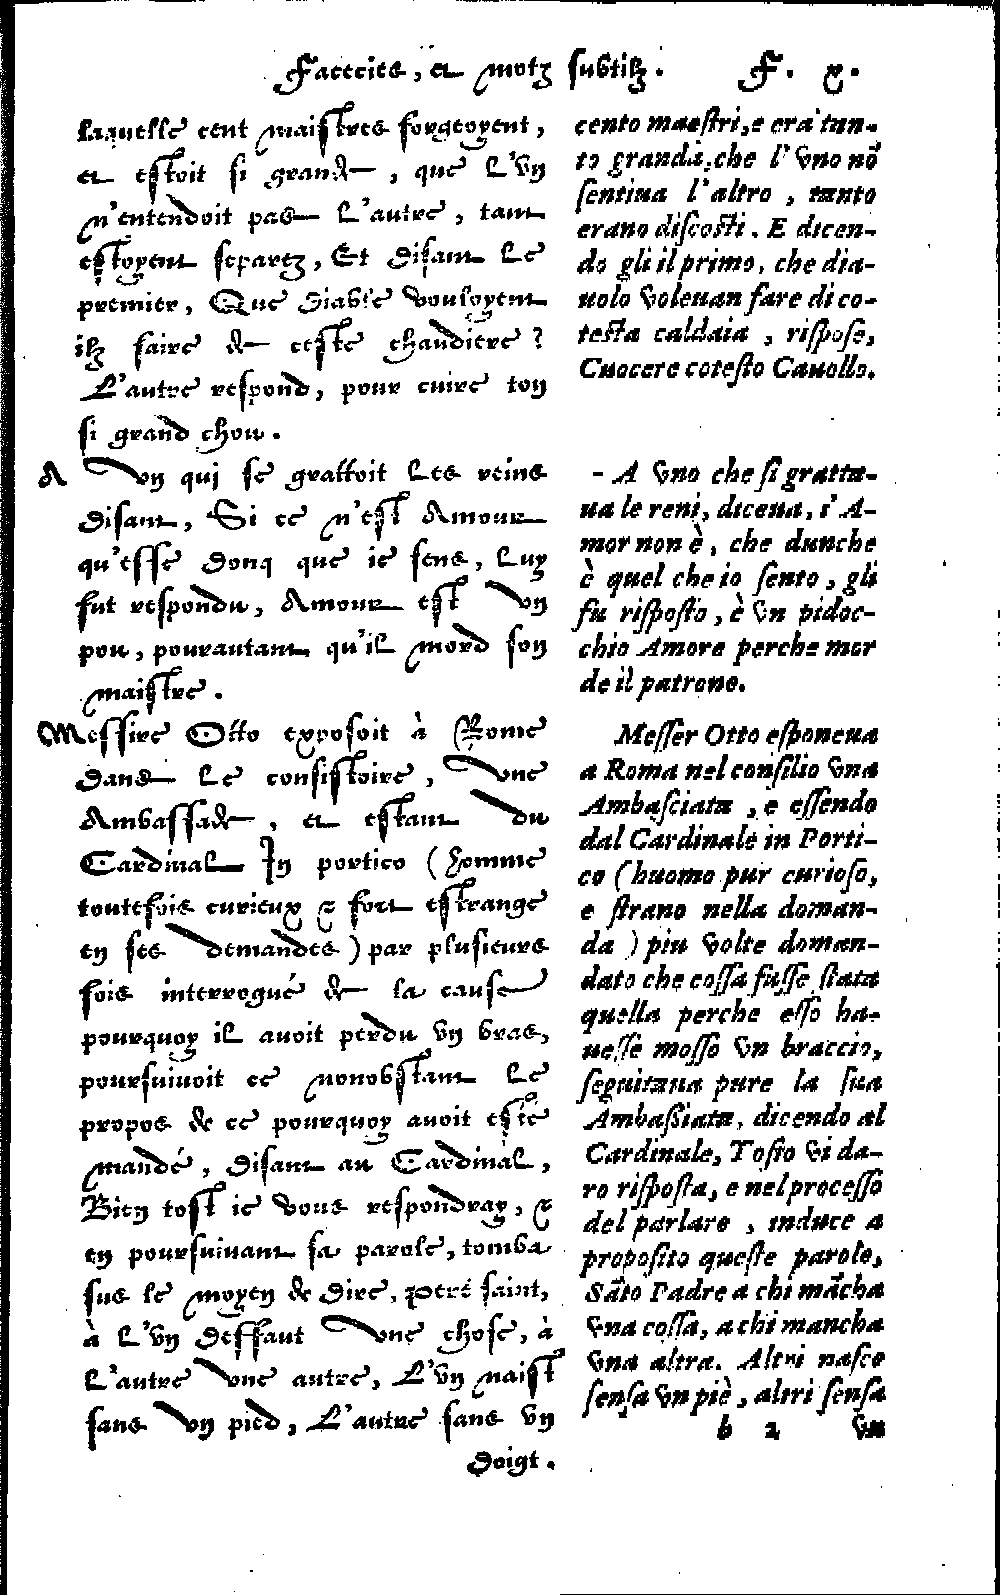 Facecies, et motz subtilz. F. x.
laquelle cent maistres forgeoyent,
et estoit si grande, que l'vn
n'entendoit pas l'autre, tant
estoyent separez, Et disant le
premier, Que diable vouloyent
ilz faire de ceste chaudiere?
L'autre respond, pour cuire ton
si grand chou.
A vn qui se grattoit les reins
disant, Si ce n'est Amour
qu'esse donq que ie sens, luy
fut respondu, Amour est vn
pou, pourautant qu'il mord son
maistre.
Messire Otto exposoit à Rome
dans le consistoire, vne
Ambassade, et estant du
Cardinal In portico (homme
toutefois curieux & fort estrange
en ses demandes) par plusieurs
fois interrogué de la cause
pourquoy il auoit perdu vn bras,
poursuiuoit ce nonobstant le
propos de ce pourquoy auoit esté
mandé, disant au Cardinal,
Bien tost ie vous respondray, &
en poursuiuant sa parole, tomba
sus le moyen de dire, pere saint,
à l'vn deffaut vne chose, à
l'autre vne autre, L'vn naist
sans vn pied, L'autre sans vn
doigt.
cento maestri, e era tan-
to granda, che l' vno nõ
sentiua l'altro, tanto
erano discosti. E dicen-
do gli il primo, che dia-
uolo voleuan fare di co-
testa caldaia, rispose,
Cuocere cotesto Cauollo.
- A vno che si gratta-
ua le reni, diceua, s' A-
mor non è, che dunche
è quel che io sento, gli
fu risposto, è vn pidoc-
chio Amore perche mor
de il patrone.
Messer Otto esponeua
a Roma nel consilio vna
Ambasciata, e essendo
dal Cardinale in Porti-
co (huomo pur curioso,
e strano nella doman-
da) piu volte doman-
dato che cossa fusse stata
quella perche esso ha-
uesse mosso vn braccio,
seguitaua pure la sua
Ambassiata, dicendo al
Cardinale, Tosto vi da-
ro risposta, e nel processo
del parlare, induce a
proposito queste parole,
Sãto Padre a chi mãcha
vna cossa, a chi mancha
vna altra. Altri nasce
sensa vn piè, altri sensa
b 2 vn